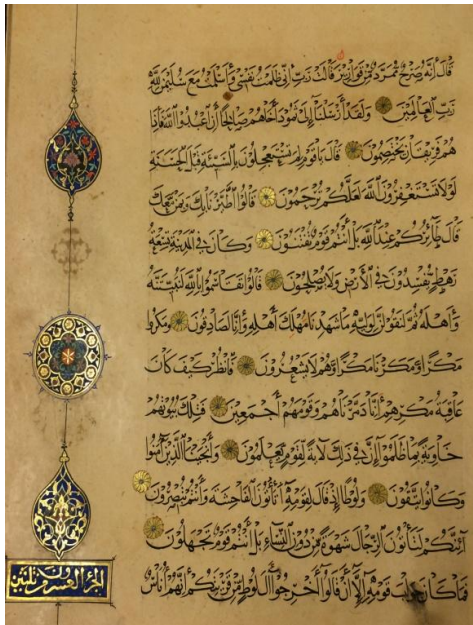 قَالَ إِنَّهُ صَرْحٌ مُمَرَّدٌ مِنْ قَوَارِيرَ قَالَتْ رَبِّ إِنِّي ظَلَمْتُ نَفْسِي وَأَسْلَمْتُ مَعَ سُلَيْمٰنَ لِلَّهِ
رَبِّ الْعَالَمِينَ وَلَقَدْ أَرْسَلْنَا إِلَى ثَمُودَ أَخَاهُمْ صَالِحًا أَنِ اعْبُدُوا اللَّهَ فَإِذَا
هُمْ فَرِيقَانِ يَخْتَصِمُونَ قَالَ يَا قَوْمِ لِمَ تَسْتَعْجِلُونَ بِالسَّيِّئَةِ قَبْلَ الْحَسَنَةِ
لَوْلَا تَسْتَغْفِرُونَ اللَّهَ لَعَلَّكُمْ تُرْحَمُونَ قَالُوا اطَّيَّرْنَا بِكَ وَبِمَنْ مَعَكَ
قَالَ طَائِرُكُمْ عِنْدَ اللَّهِ بَلْ أَنْتُمْ قَوْمٌ تُفْتَنُونَ وَكَانَ فِي الْمَدِينَةِ تِسْعَةُ
رَهْطٍ يُفْسِدُونَ فِي الْأَرْضِ وَلَا يُصْلِحُونَ قَالُوا تَقَاسَمُوا بِاللَّهِ لَنُبَيِّتَنَّهُ
وَأَهْلَهُ ثُمَّ لَنَقُولَنَّ لِوَلِيِّهِ مَا شَهِدْنَا مَهْلِكَ أَهْلِهِ وَإِنَّا لَصَادِقُونَ وَمَكَرُوا
مَكْرًا وَمَكَرْنَا مَكْرًا وَهُمْ لَا يَشْعُرُونَ فَانْظُرْ كَيْفَ كَانَ
عَاقِبَةُ مَكْرِهِمْ أَنَّا دَمَّرْنَاهُمْ وَقَوْمَهُمْ أَجْمَعِينَ فَتِلْكَ بُيُوتُهُمْ
خَاوِيَةً بِمَا ظَلَمُوا إِنَّ فِي ذَلِكَ لَآيَةً لِقَوْمٍ يَعْلَمُونَ وَأَنْجَيْنَا الَّذِينَ آمَنُوا
وَكَانُوا يَتَّقُونَ وَلُوطًا إِذْ قَالَ لِقَوْمِهِ أَتَأْتُونَ الْفَاحِشَةَ وَأَنْتُمْ تُبْصِرُونَ
أَئِنَّكُمْ لَتَأْتُونَ الرِّجَالَ شَهْوَةً مِنْ دُونِ النِّسَاءِ بَلْ أَنْتُمْ قَوْمٌ تَجْهَلُونَ
فَمَا كَانَ جَوَابَ قَوْمِهِ إِلَّا أَنْ قَالُوا أَخْرِجُوا آلَ لُوطٍ مِنْ قَرْيَتِكُمْ إِنَّهُمْ أُنَاسٌ
الجزء العشرون من ثلثين